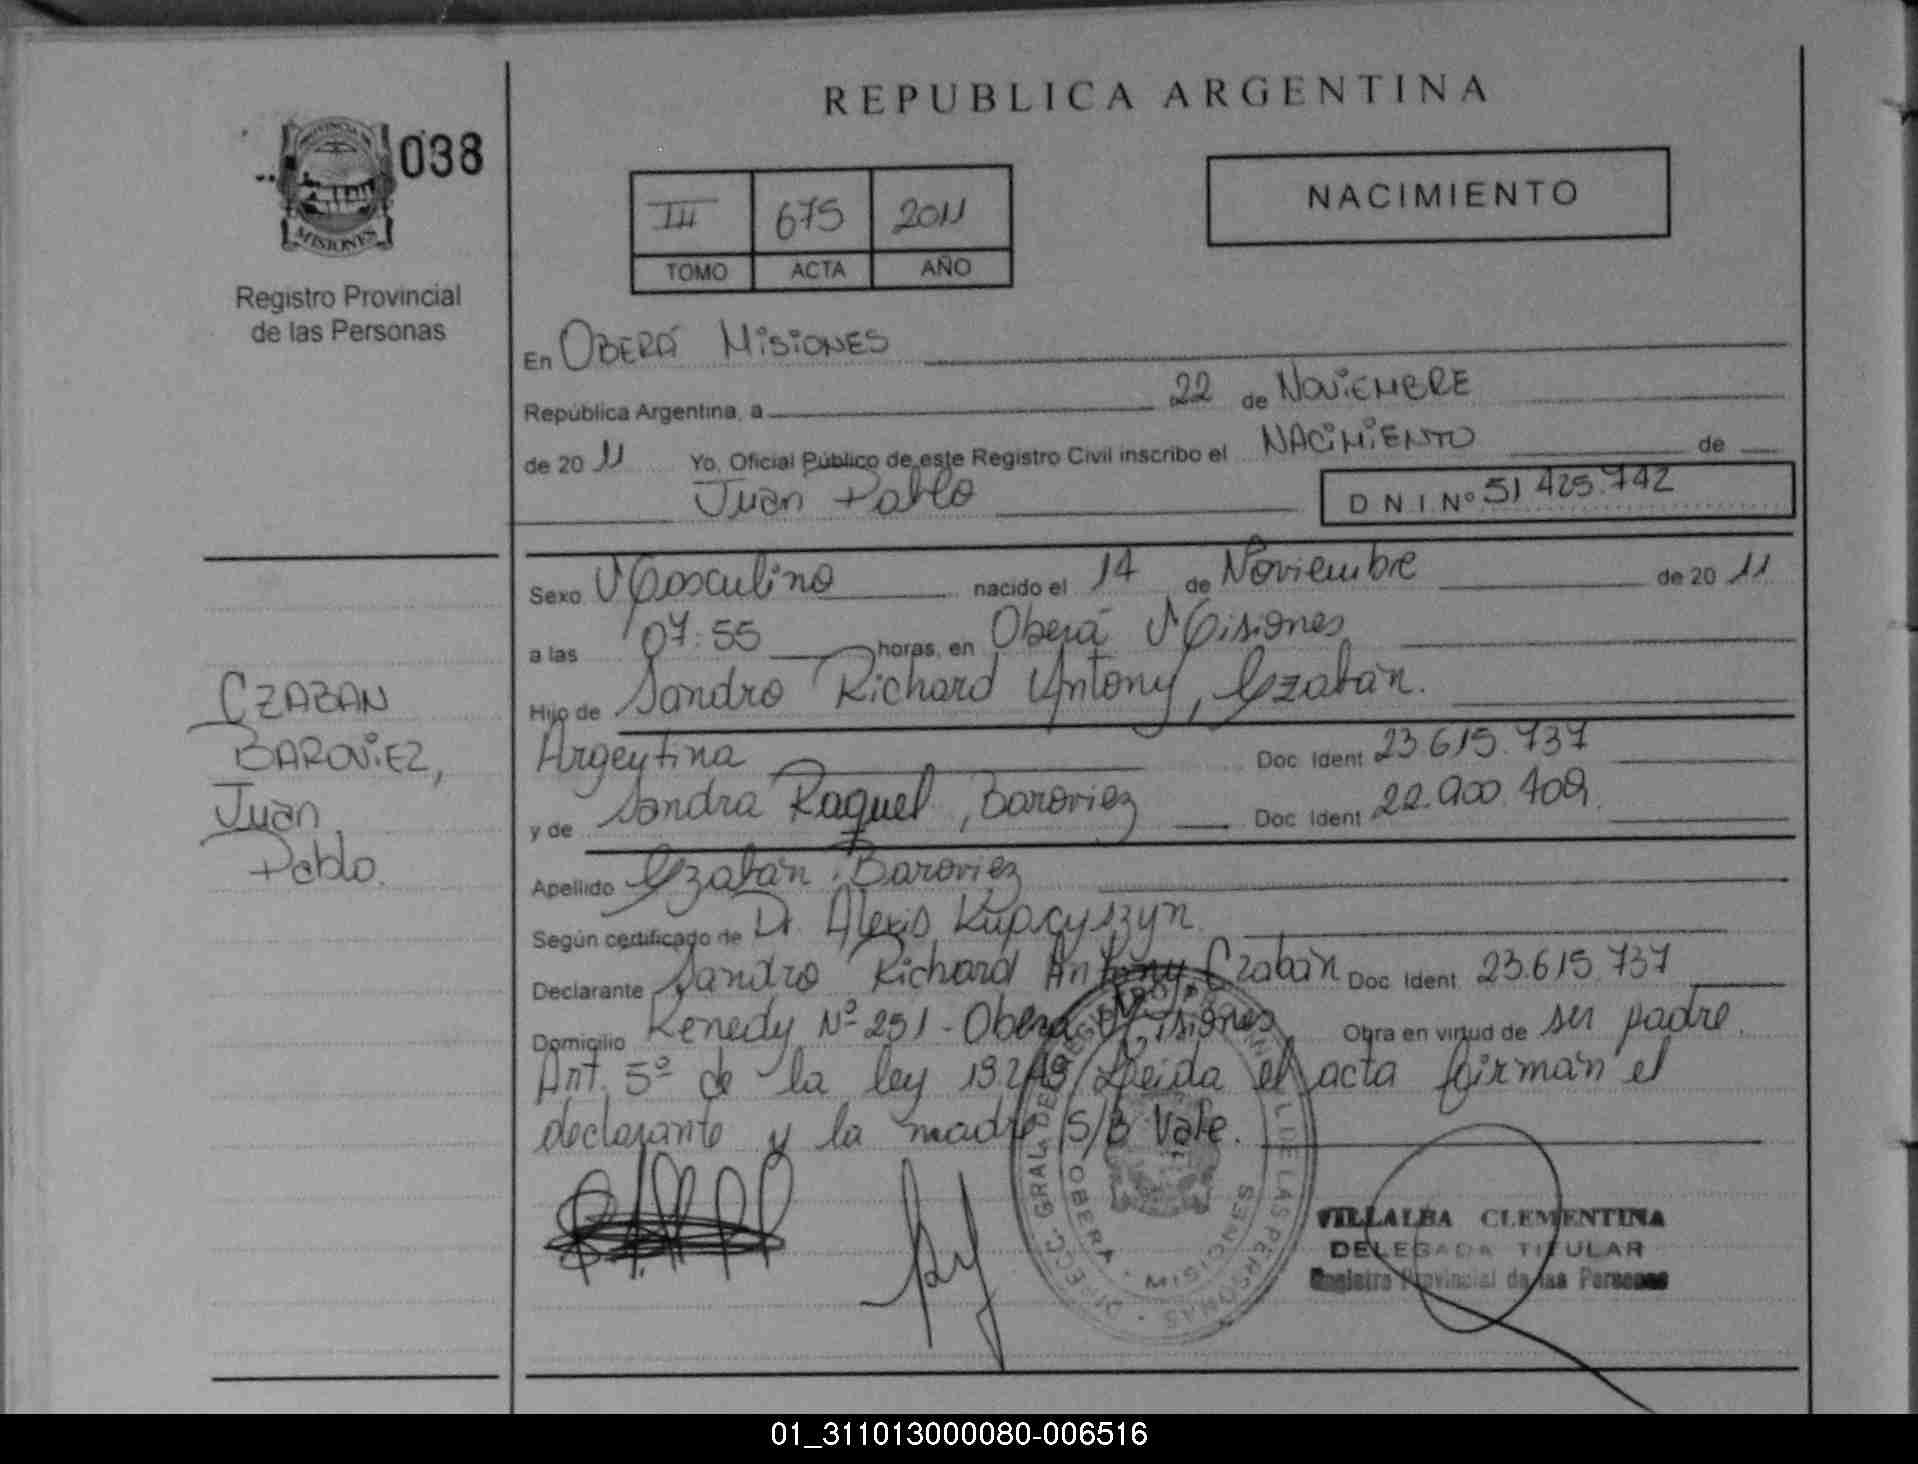 REPUBLICA ARGENTINA
PROVINCIA DE
MISIONES
038
Registro Provincial
de las Personas
III 675 2011
TOMO ACTA AÑO
NACIMIENTO
En OBERÁ MISIONES
República Argentina, a 22 de NOVIEMBRE
de 20 11 Yo, Oficial Público de este Registro Civil inscribo el NACIMIENTO de
Juan Pablo D N I Nº 51 425.742
Sexo Masculino nacido el 14 de Noviembre de 20 11
a las 07:55 horas, en Oberá Misiones
Hijo de Sandro Richard Antony, Czabán.
Argentina Doc Ident 23.615.737
y de Sandra Raquel, Baroviez Doc Ident 22.900.409.
Apellido Czabán Baroviez
Según certificado de Dr. Alexis Kupscyszyn
Declarante Sandro Richard Antony Czabán Doc Ident 23.615.737
Domicilio Kenedy Nº 251 - Oberá Misiones Obra en virtud de ser padre.
Art. 5º de la ley 13249 Leida el acta firman el
declarante y la madre S/B Vale.
CZABAN
BAROVIEZ,
Juan
Pablo.
DIRECC. GRAL. DEL REGISTRO PROVINCIAL DE LAS PERSONAS
OBERA - MISIONES
VILLALBA CLEMENTINA
DELEGADA TITULAR
Registro Provincial de las Personas
01_311013000080-006516